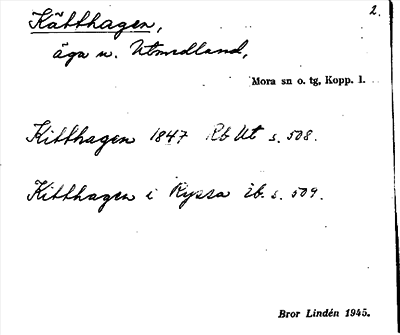 2.
Kätthagen,
äga u. Utmedland,
Mora sn o. tg, Kopp. l.
Kitthagen 1847 Rb Ut s. 508.
Kitthagen i Ryssa ib. s. 509.
Bror Lindén 1945.